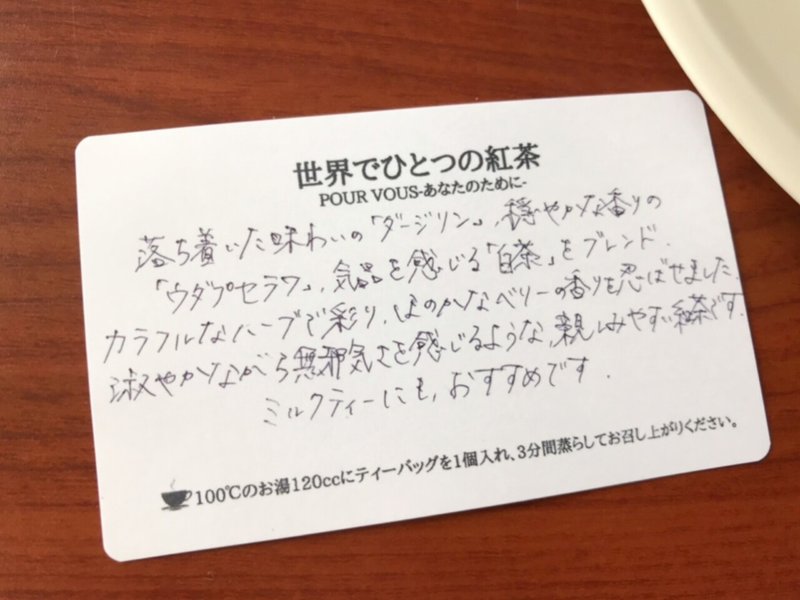 世界でひとつの紅茶
POUR VOUS-あなたのために-
落ち着いた味わいの「ダージリン」、穏やかな香りの
「ウダプセラワ」、気品を感じる「白茶」をブレンド。
カラフルなハーブで彩り、ほのかなベリーの香りを忍ばせました。
淑やかながら無邪気さを感じるような、親しみやすい紅茶です。
ミルクティーにも、おすすめです。
100℃のお湯120ccにティーバッグを1個入れ、3分間蒸らしてお召し上がりください。